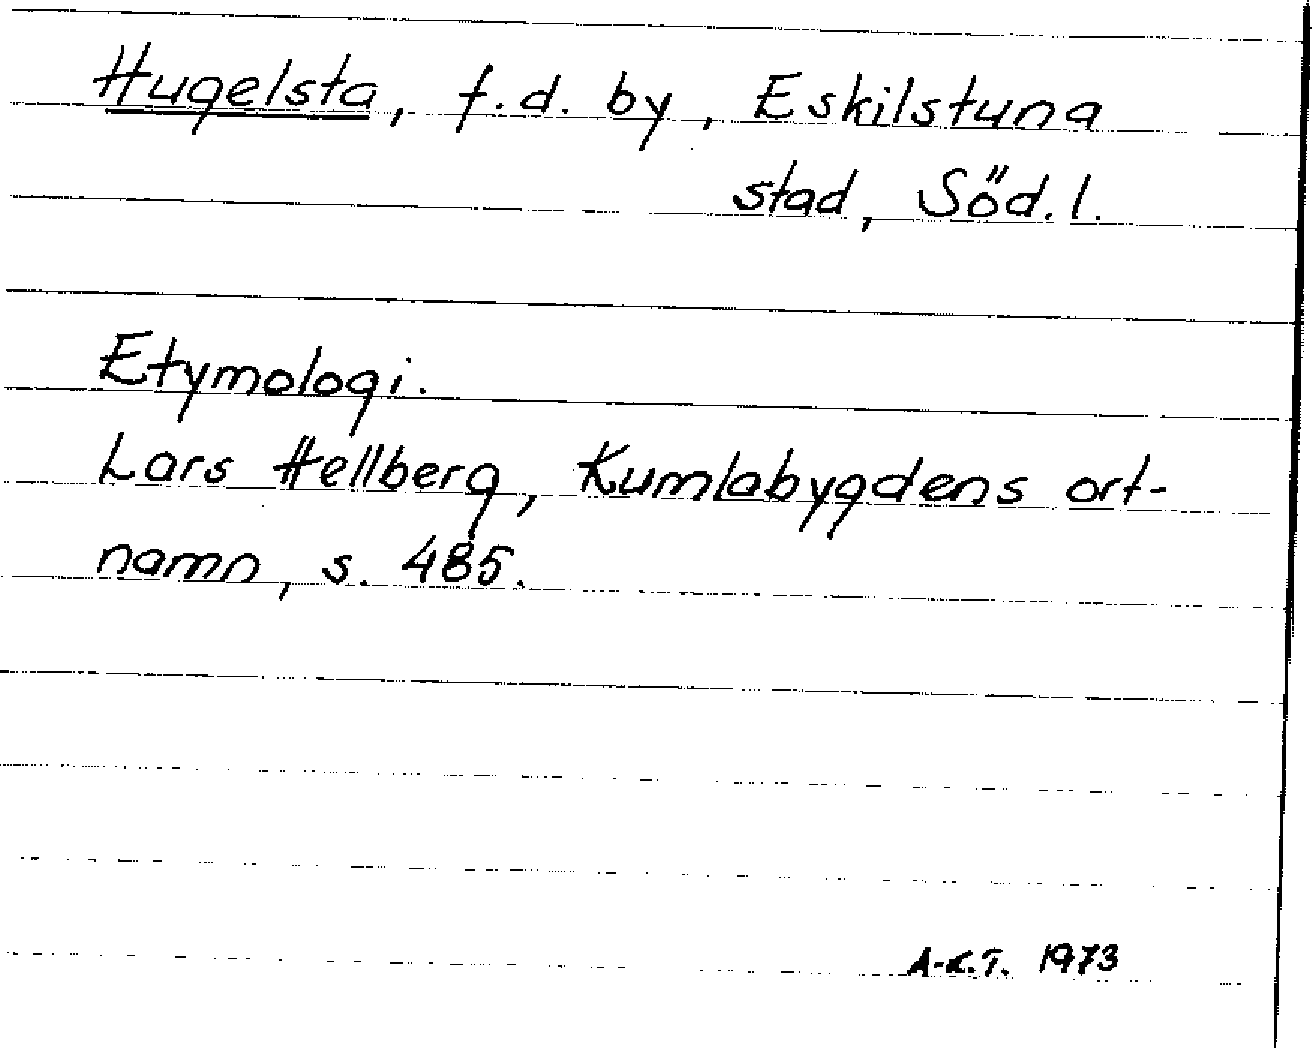 Hugelsta, f.d. by, Eskilstuna
stad, Söd. l.
Etymologi.
Lars Hellberg, Kumlabygdens ort-
namn, s. 485.
A-K.T. 1973